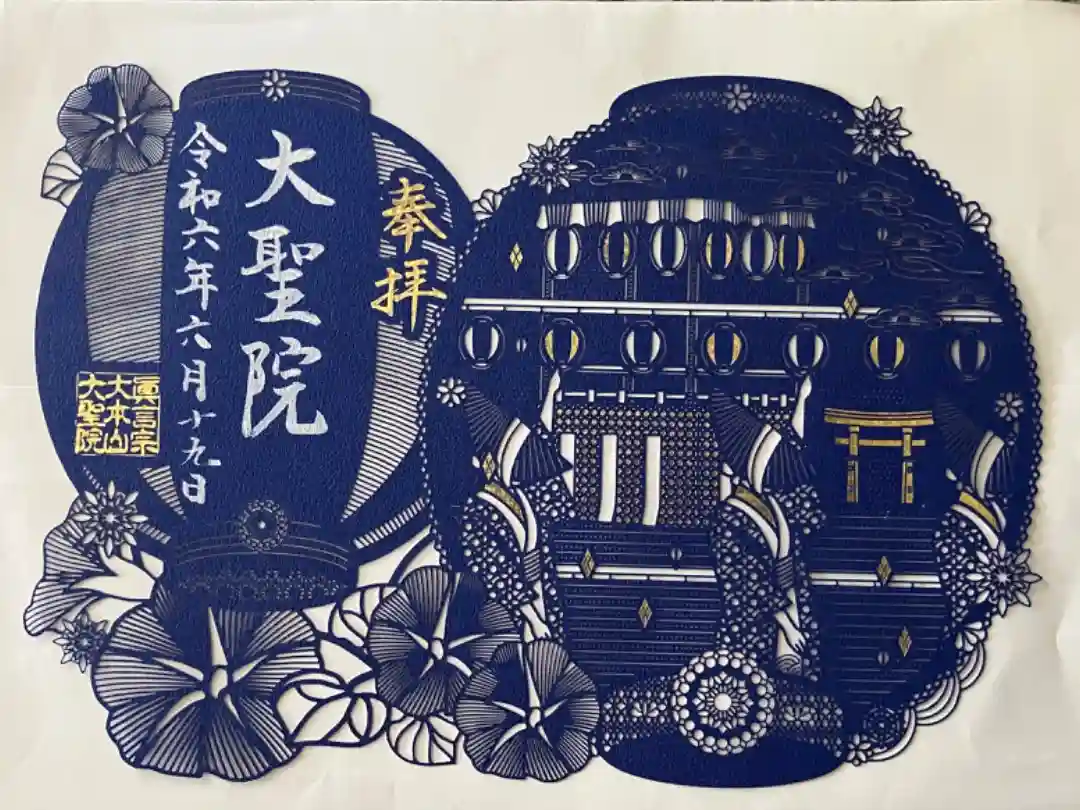 奉拝
大聖院
令和六年六月十九日
眞言宗
大本山
大聖院